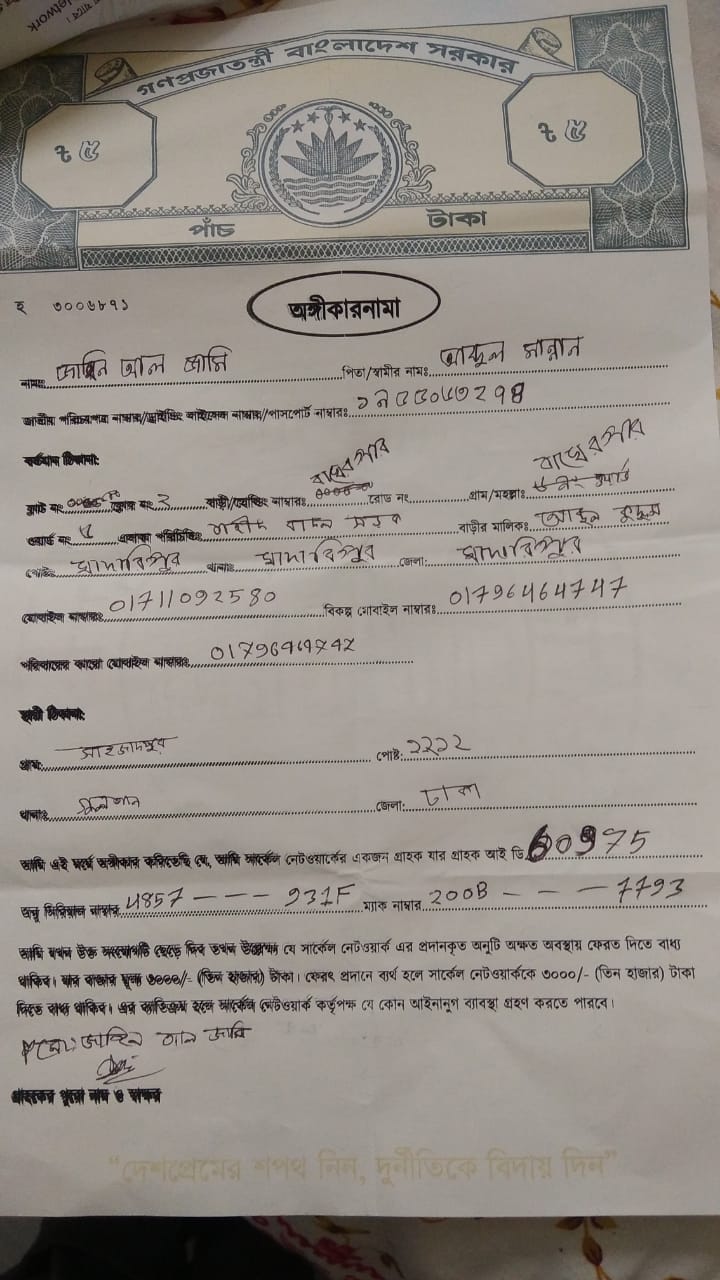 গণপ্রজাতন্ত্রী বাংলাদেশ সরকার
৳ ৫ ৳ ৫
পাঁচ টাকা
৩০০৬৮৭১
অঙ্গীকারনামা
নামঃ আল জামি পিতা/স্বামীর নামঃ মান্নান
জাতীয় পরিচয়পত্র নাম্বার/ড্রাইভিং লাইসেন্স নাম্বার/পাসপোর্ট নাম্বারঃ
বর্তমান ঠিকানা:
বাগেরপার বাগেরপার
ফ্লাট নং ফ্লোর নং ২ বাড়ী/হোল্ডিং নাম্বারঃ রোড নং গ্রাম/মহল্লাঃ
ওয়ার্ড নং ৫ এলাকা পরিচিতিঃ শহীদ সড়ক বাড়ীর মালিকঃ কুদ্দুস
পোষ্টঃ মাদারিপুর থানাঃ মাদারিপুর জেলা: মাদারিপুর
মোবাইল নাম্বারঃ 01711092580 বিকল্প মোবাইল নাম্বারঃ 01796464747
পরিবারের কারো মোবাইল নাম্বারঃ
স্থায়ী ঠিকানা:
গ্রাম: সাহজাদপুর পোষ্ট: ১২১২
থানাঃ গুলশান জেলা: ঢাকা
আমি এই মর্মে অঙ্গীকার করিতেছি যে, আমি সার্কেল নেটওয়ার্কের একজন গ্রাহক যার গ্রাহক আই ডি 60975
অনু সিরিয়াল নাম্বার 4857 --- 931F ম্যাক নাম্বার 200B - - - 7793
আমি যখন উক্ত সংযোগটি ছেড়ে দিব তখন উল্লেখ্য যে সার্কেল নেটওয়ার্ক এর প্রদানকৃত অনুটি অক্ষত অবস্থায় ফেরত দিতে বাধ্য
থাকিব। যার বাজার মূল্য ৩০০০/- (তিন হাজার) টাকা। ফেরৎ প্রদানে ব্যর্থ হলে সার্কেল নেটওয়ার্ককে ৩০০০/- (তিন হাজার) টাকা
দিতে বাধ্য থাকিব। এর ব্যতিক্রম হলে সার্কেল নেটওয়ার্ক কর্তৃপক্ষ যে কোন আইনানুগ ব্যাবস্থা গ্রহণ করতে পারবে।
মোঃ আল জামি
গ্রাহকের পুরো নাম ও স্বাক্ষর
"দেশপ্রেমের শপথ নিন, দুর্নীতিকে বিদায় দিন"